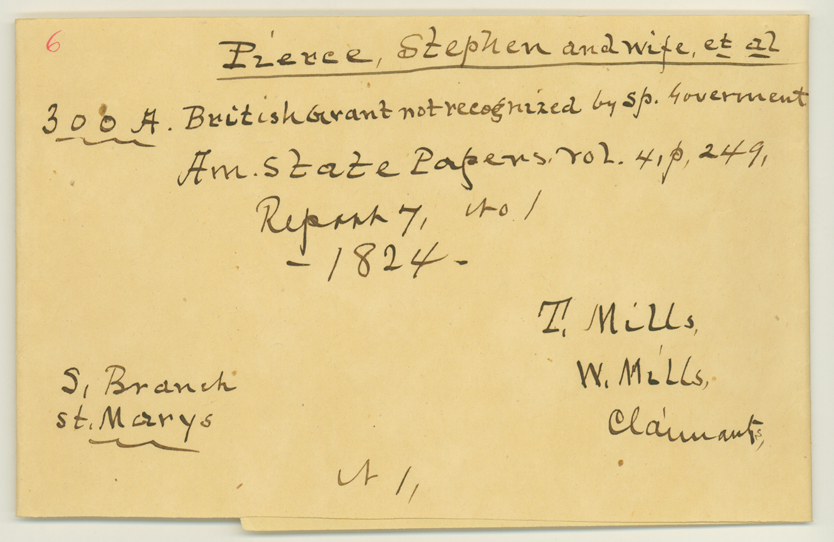 6
Pierce, Stephen and wife, et al
300 A. British Grant not recognized by Sp. Goverment
Am. State Papers. Vol. 4, p, 249,
Report 7, No 1
- 1824 -
T. Mills,
W. Mills,
Claimants,
S, Branch
St. Marys
N 1,